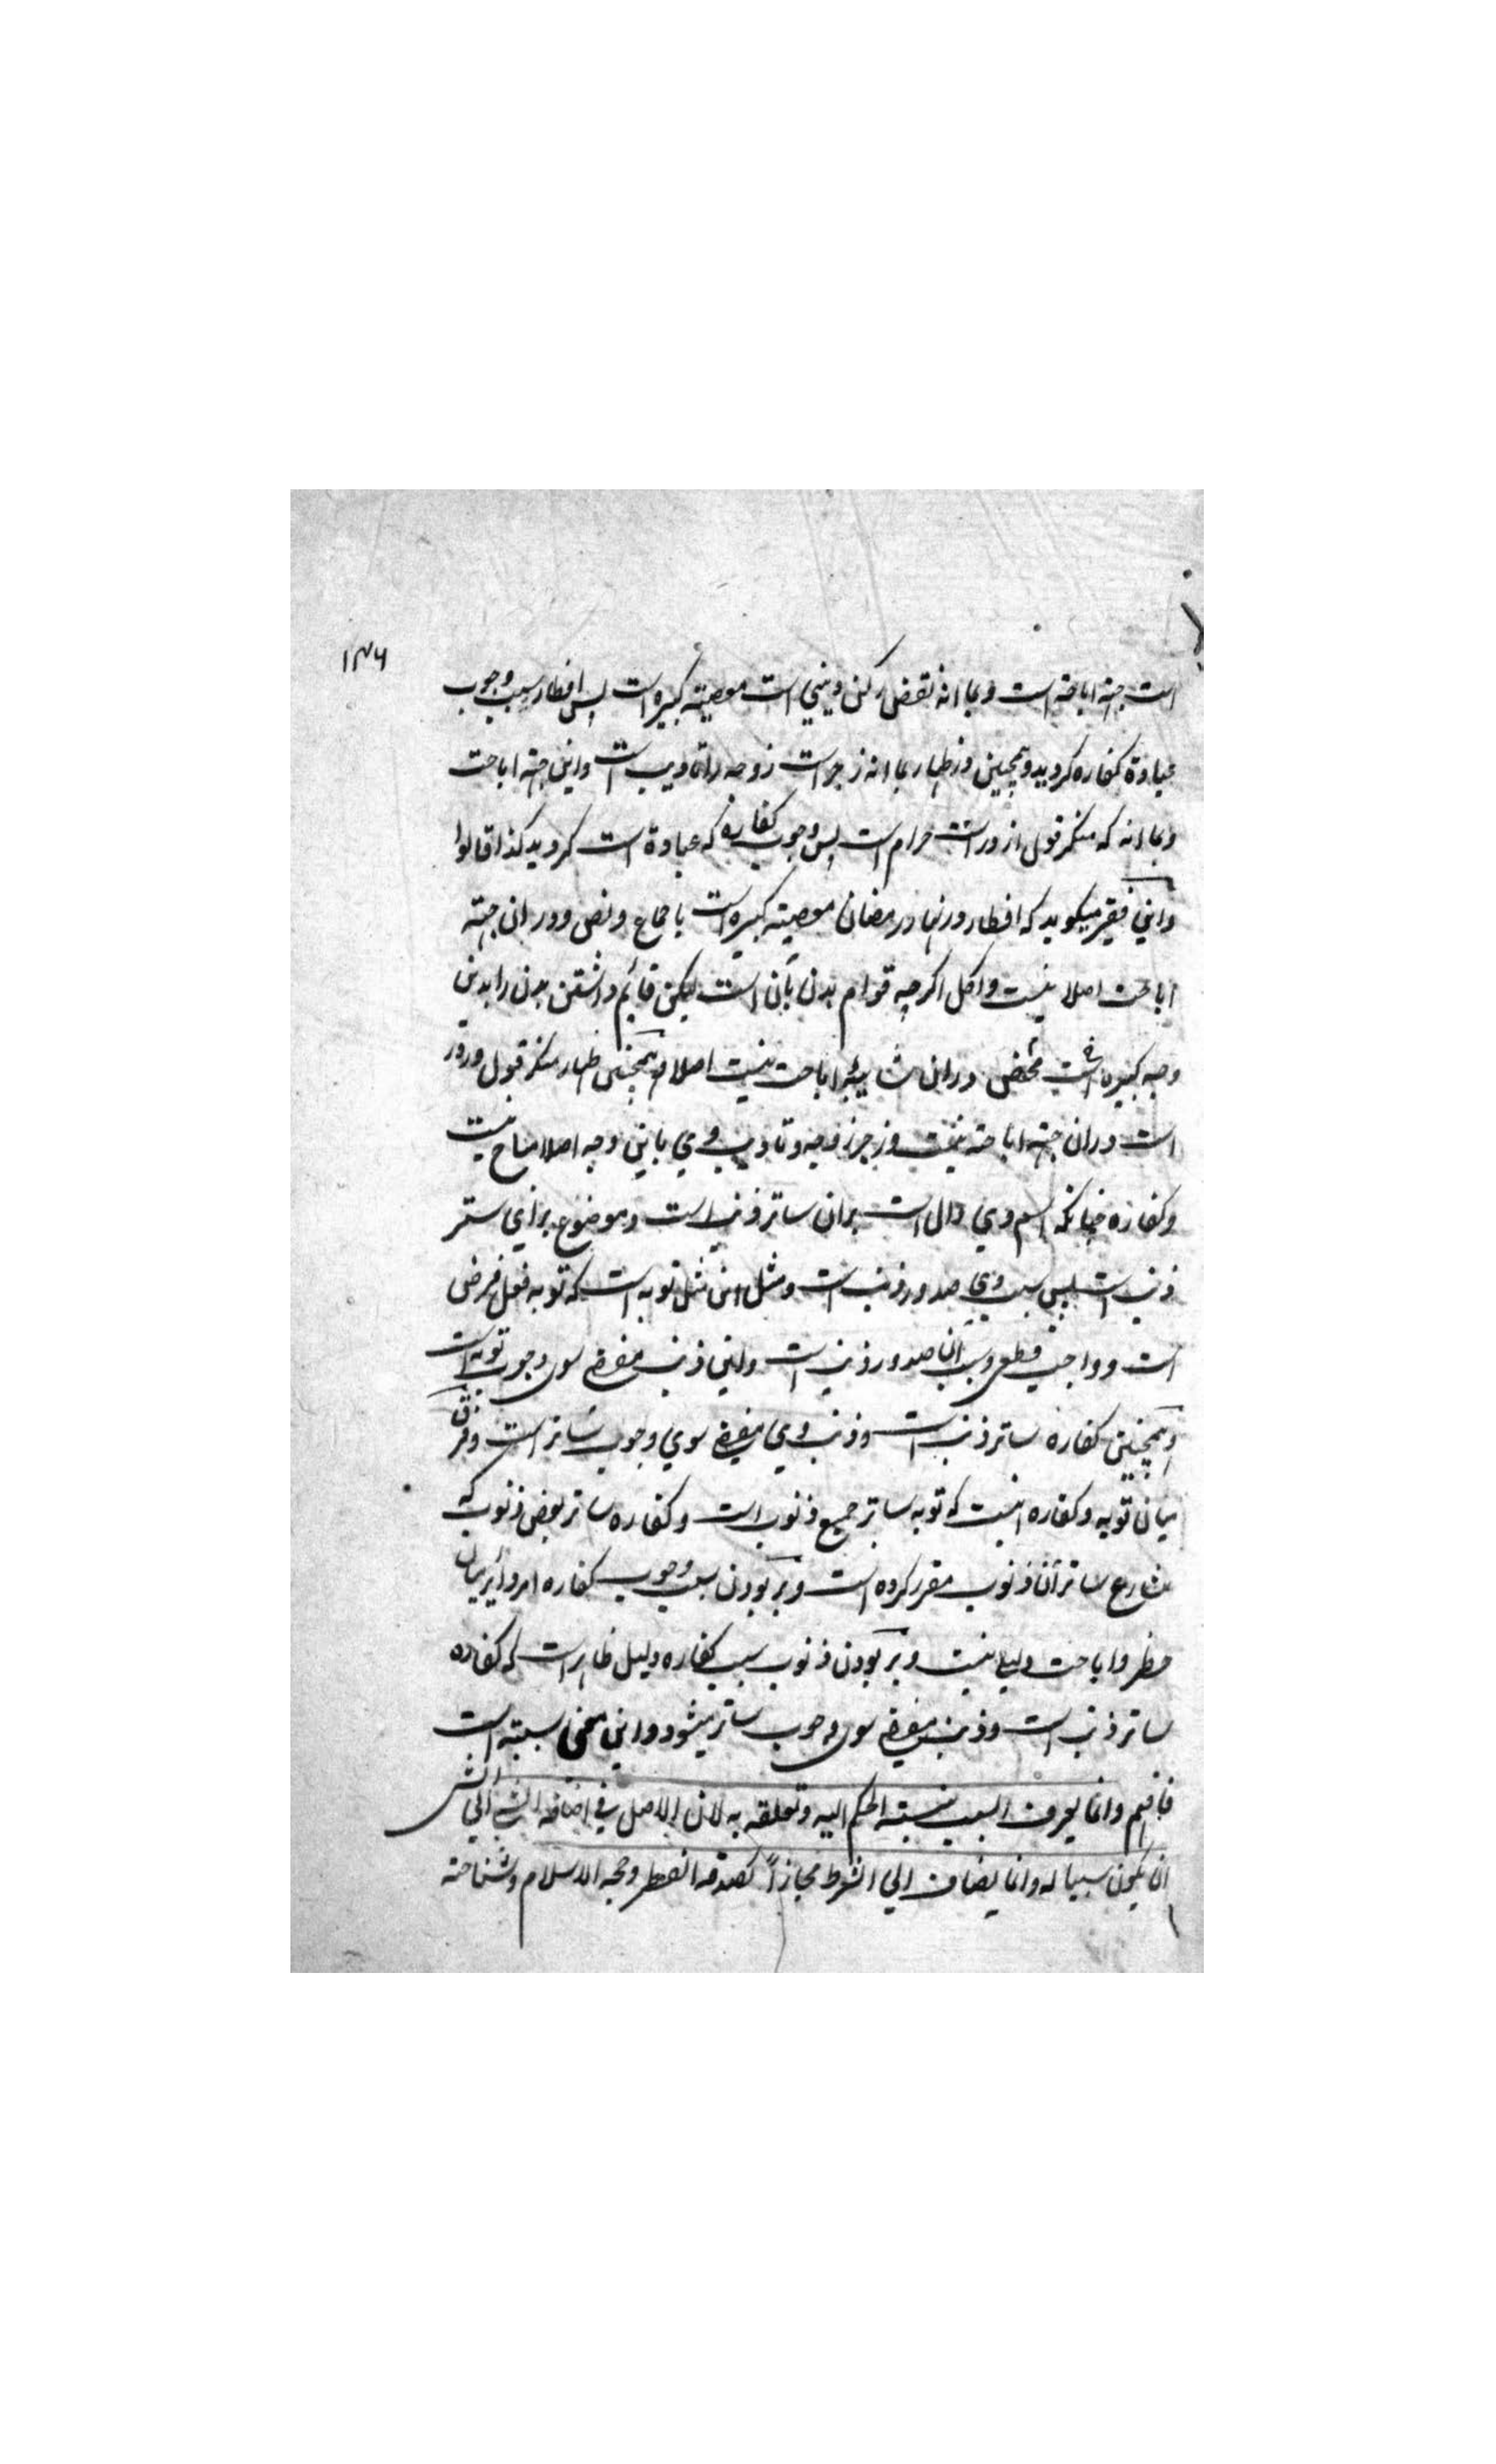 ۱۳۶
است جهته اباحته است و بما انه نقض رکن دینی است معصیته کبیره است پس افطار سبب وجوب
عبادة کفاره کردید و همچنین در ظهار بما انه زجر است زوجه را تادیب است و این جهته اباحت
و بما انه که منکر قول از ور است حرام است پس وجوب کفاره که عبادة است کردید کذا قالوا
و این فقیر میکوید که افطار در نهار رمضان معصیته کبیره است باجماع و نص و در ان جهته
اباحت اصلا نیست و اکل اکرچه قوام بدن بآن است لیکن قائم داشتن بدن را بدین
وجه کبیره است محض در ان شائبه اباحت نیست اصلا و همچنین ظهار منکر قول و زور
است در ان جهته اباحته نیست و زجر زوجه و تادیب وی باین وجه اصلا مباح نیست
و کفاره چنانکه اسم وی دال است بران ساتر ذنب است و موضوع برای ستر
ذنب است پس سبب وی صدور ذنب است و مثل این مثل توبه است که توبه فعل فرض
است و واجب قطعی و سبب آن صدور ذنب است و این ذنب مفضی سوی وجوب توبه است
و همچنین کفاره ساتر ذنب است و ذنب وی مفضی سوی وجوب ساتر است و فرق
میان توبه و کفاره اینست که توبه ساتر جمیع ذنوب است و کفاره ساتر بعض ذنوب که
شارع ساتر آن ذنوب مقرر کرده است و بر بودن سبب وجوب کفاره امر دائر میان
حظر و اباحت دلیلی نیست و بر بودن ذنوب سبب کفاره دلیل ظاهر است که کفاره
ساتر ذنب است و ذنب مفضی سوی وجوب ساتر میشود و این معنی سببیته است
فافهم و انما یعرف السبب بنسبته الحکم الیه و تعلقه به لان الاصل فی اضافه الشی الی الشی
ان یکون سببا له و انما یضاف الی الشرط مجازاً کصدقه الفطر و حجه الاسلام و شناخته